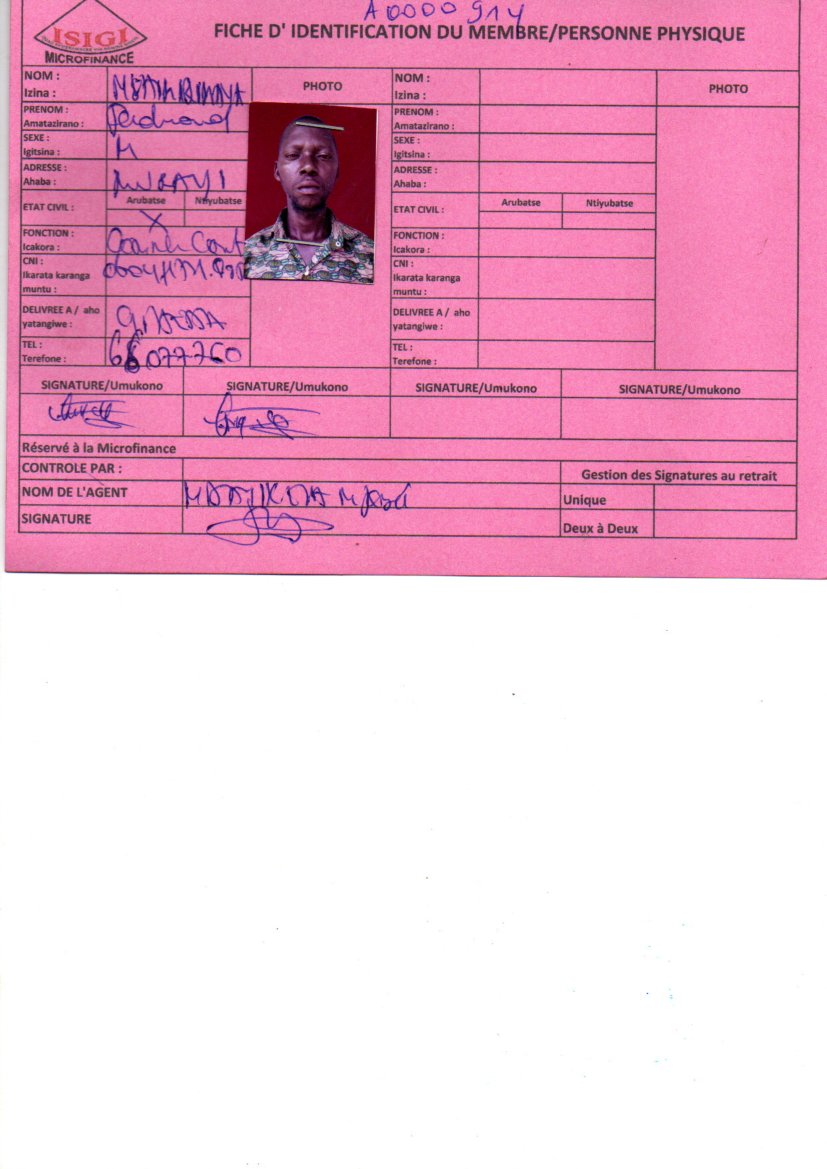 A0000914
ISIGI
MICROFINANCE
FICHE D' IDENTIFICATION DU MEMBRE/PERSONNE PHYSIQUE
NOM :
Izina :
PHOTO
PRENOM :
Amatazirano :
Ferdinand
SEXE :
Igitsina :
M
ADRESSE :
Ahaba :
MURAYI
ETAT CIVIL :
Arubatse
Ntiyubatse
X
FONCTION :
Icakora :
CNI :
Ikarata karanga
muntu :
DELIVREE A / aho
yatangiwe :
TEL :
Terefone :
68077760
NOM :
Izina :
PHOTO
PRENOM :
Amatazirano :
SEXE :
Igitsina :
ADRESSE :
Ahaba :
ETAT CIVIL :
Arubatse
Ntiyubatse
FONCTION :
Icakora :
CNI :
Ikarata karanga
muntu :
DELIVREE A / aho
yatangiwe :
TEL :
Terefone :
SIGNATURE/Umukono
SIGNATURE/Umukono
SIGNATURE/Umukono
SIGNATURE/Umukono
Réservé à la Microfinance
CONTROLE PAR :
Gestion des Signatures au retrait
NOM DE L'AGENT
Unique
SIGNATURE
Deux à Deux